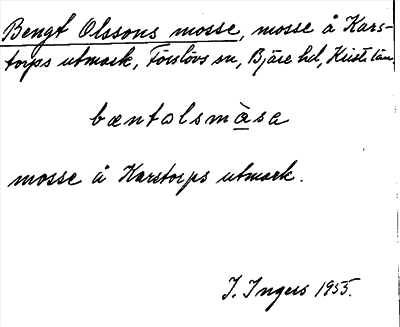 Bengt Olssons mosse, mosse å Kars-
torps utmark, Förslövs sn, Bjäre hd, Kristi. län.
bæntɔlsmàsa
mosse å Karstorps utmark.
I. Ingers 1955.